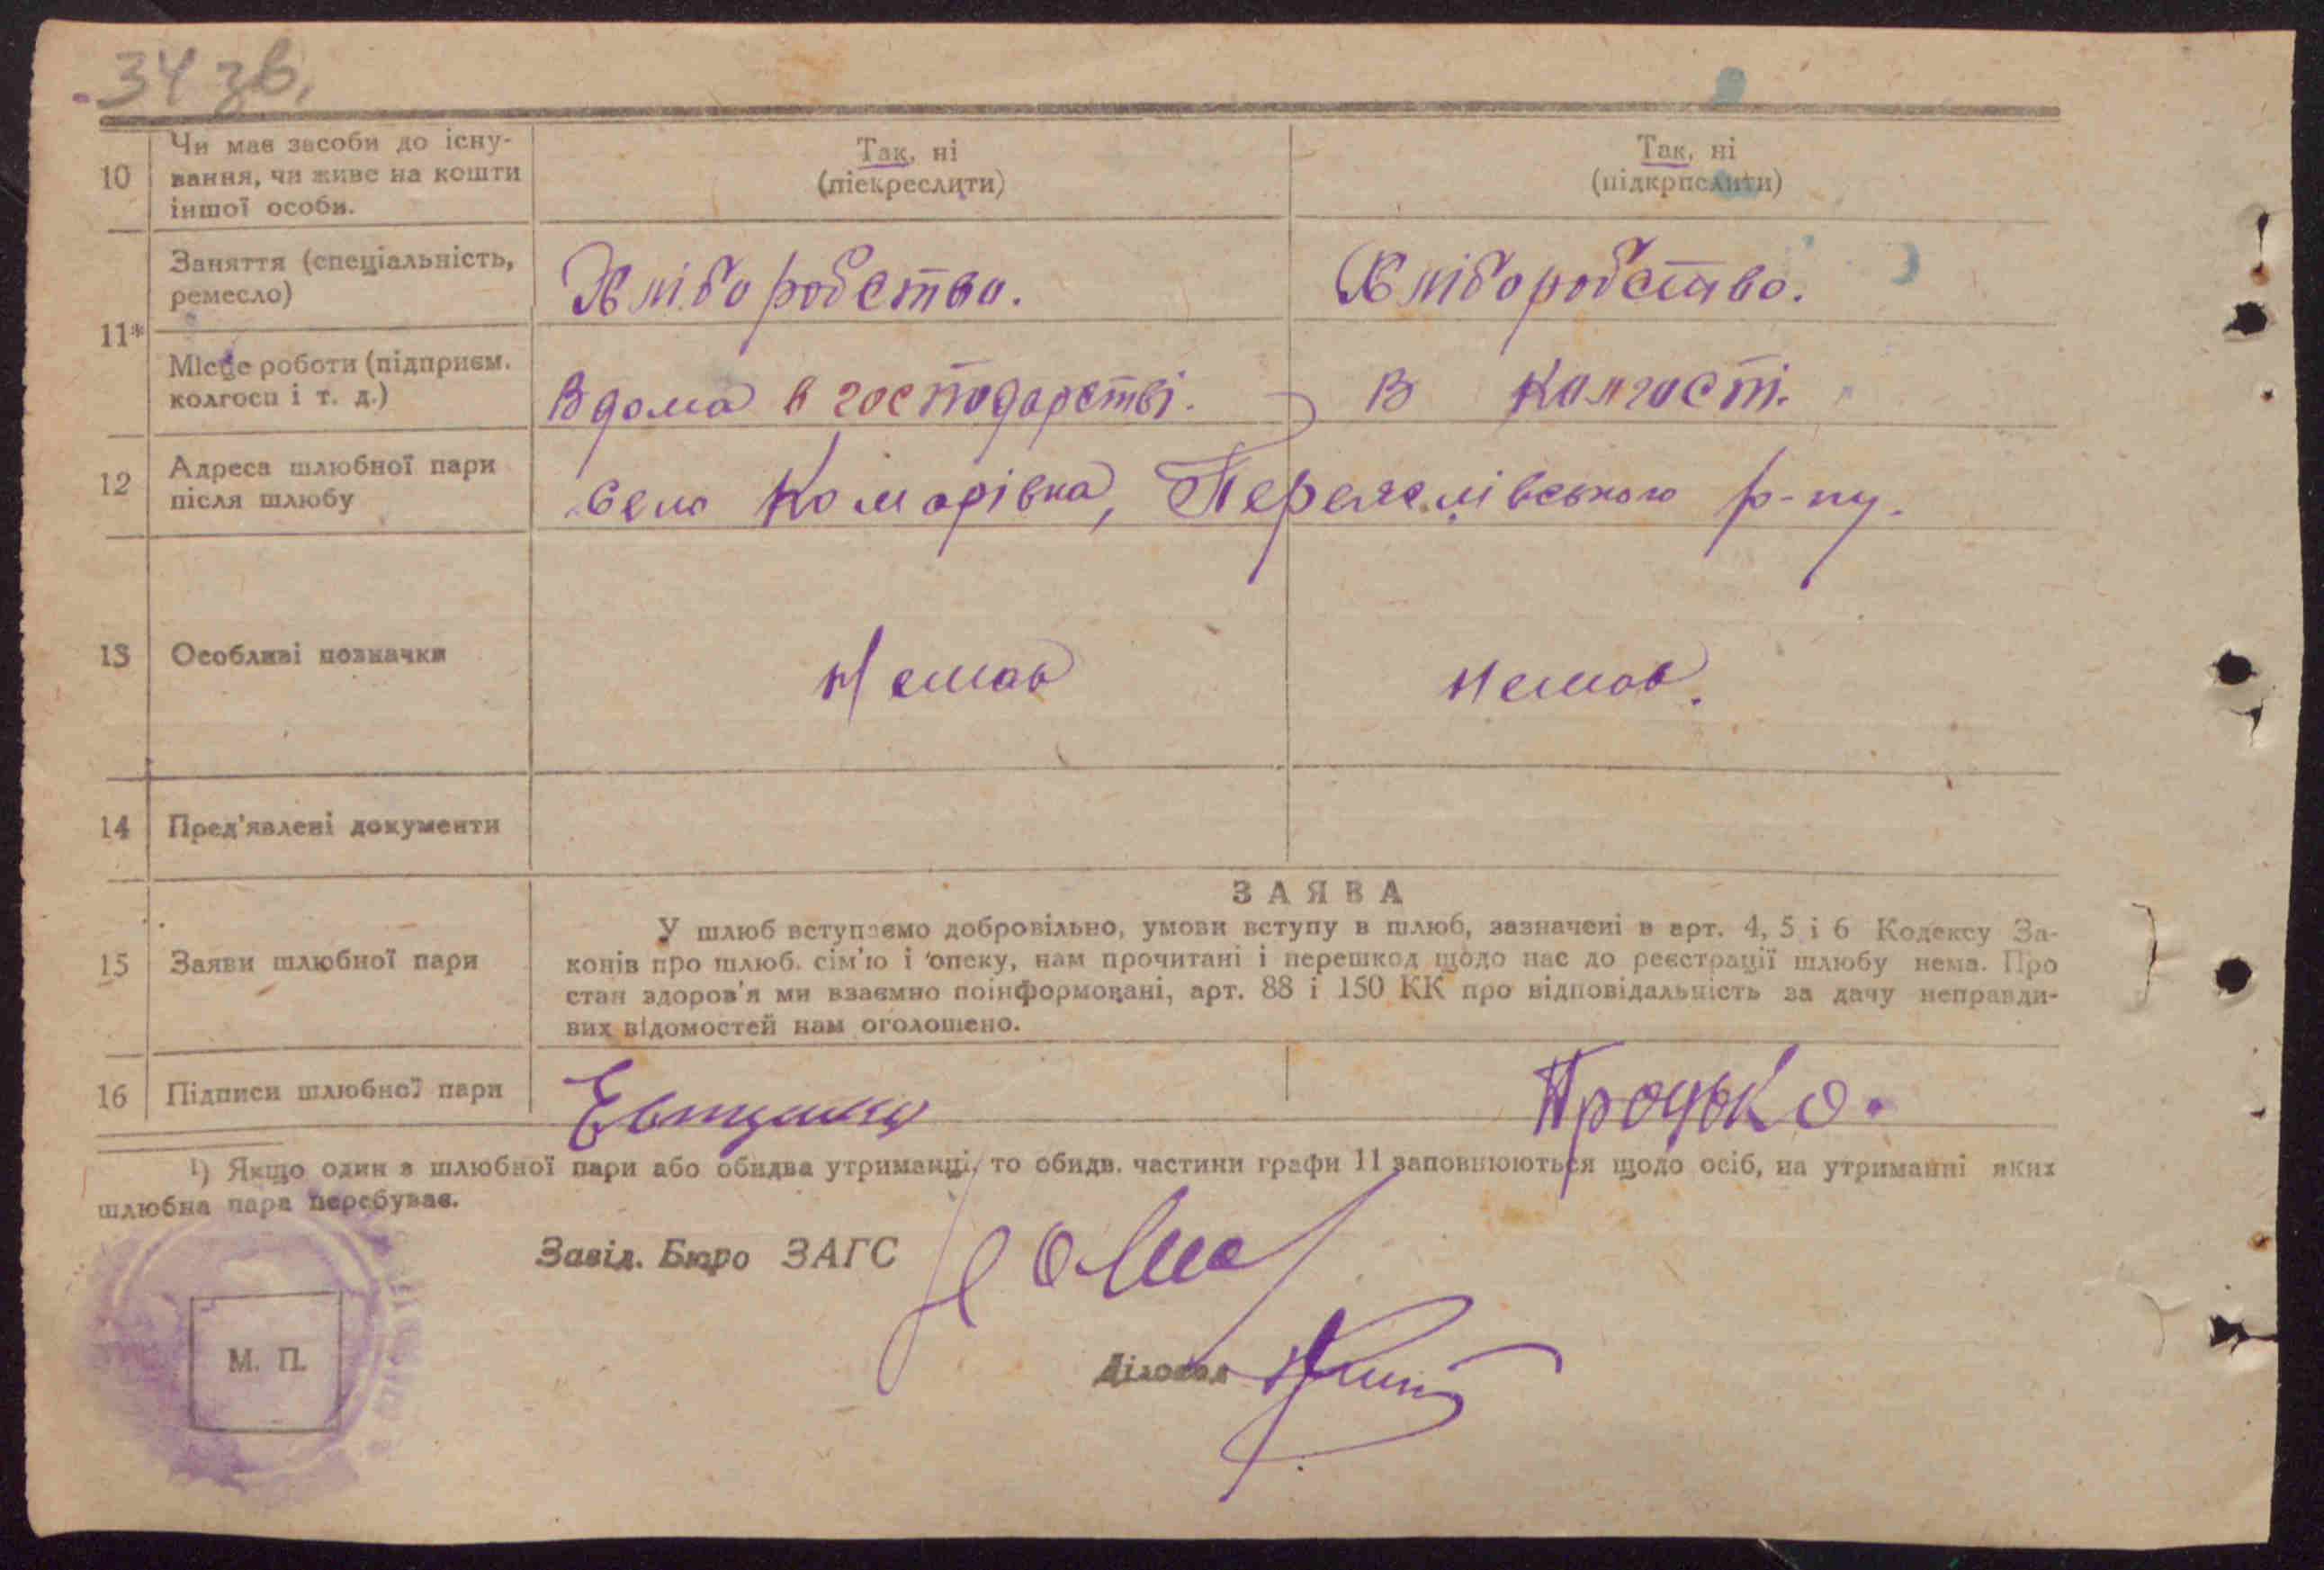 34 зв.
10
Чи має засоби до існу-
вання, чи живе на кошти
іншої особи.
Так, ні
(піекреслити)
Так, ні
(підкрпслити)
11*
Заняття (спеціальність,
ремесло)
Хліборобство.
Хліборобство.
Місце роботи (підприєм.
колгосп і т. д.)
Вдома в господарстві.
В Колгоспі.
12
Адреса шлюбної пари
після шлюбу
село Комарівка, Переяслівського р-ну.
13
Особливі позначки
Немає
Немає.
14
Пред'явлені документи
15
Заяви шлюбної пари
ЗАЯВА
У шлюб вступаємо добровільно, умови вступу в шлюб, зазначені в арт. 4, 5 і 6 Кодексу За-
конів про шлюб. сім'ю і опеку, нам прочитані і перешкод щодо нас до реєстрації шлюбу нема. Про
стан здоров'я ми взаємно поінформовані, арт. 88 і 150 КК про відповідальність за дачу неправди-
вих відомостей нам оголошено.
16
Підписи шлюбної пари
Процько.
1) Якщо один з шлюбної пари або обидва утриманці, то обидв. частини графи 11 заповнюються щодо осіб, на утриманні яких
шлюбна пара перебуває.
Завід. Бюро ЗАГС
Діловод
М. П.